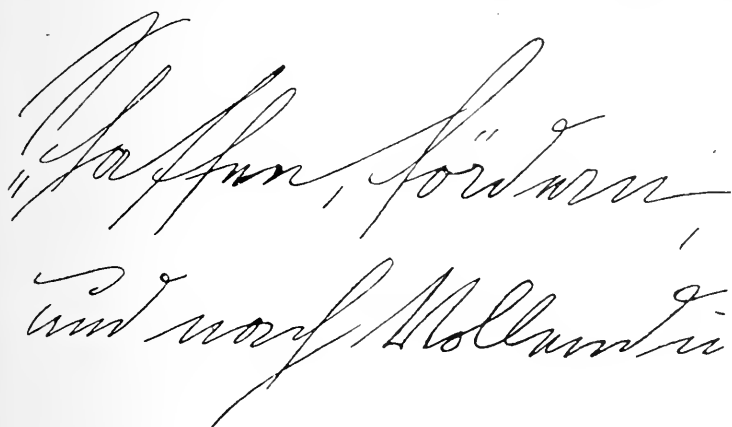 „Schaffen, fördern,
und nach Vollendu